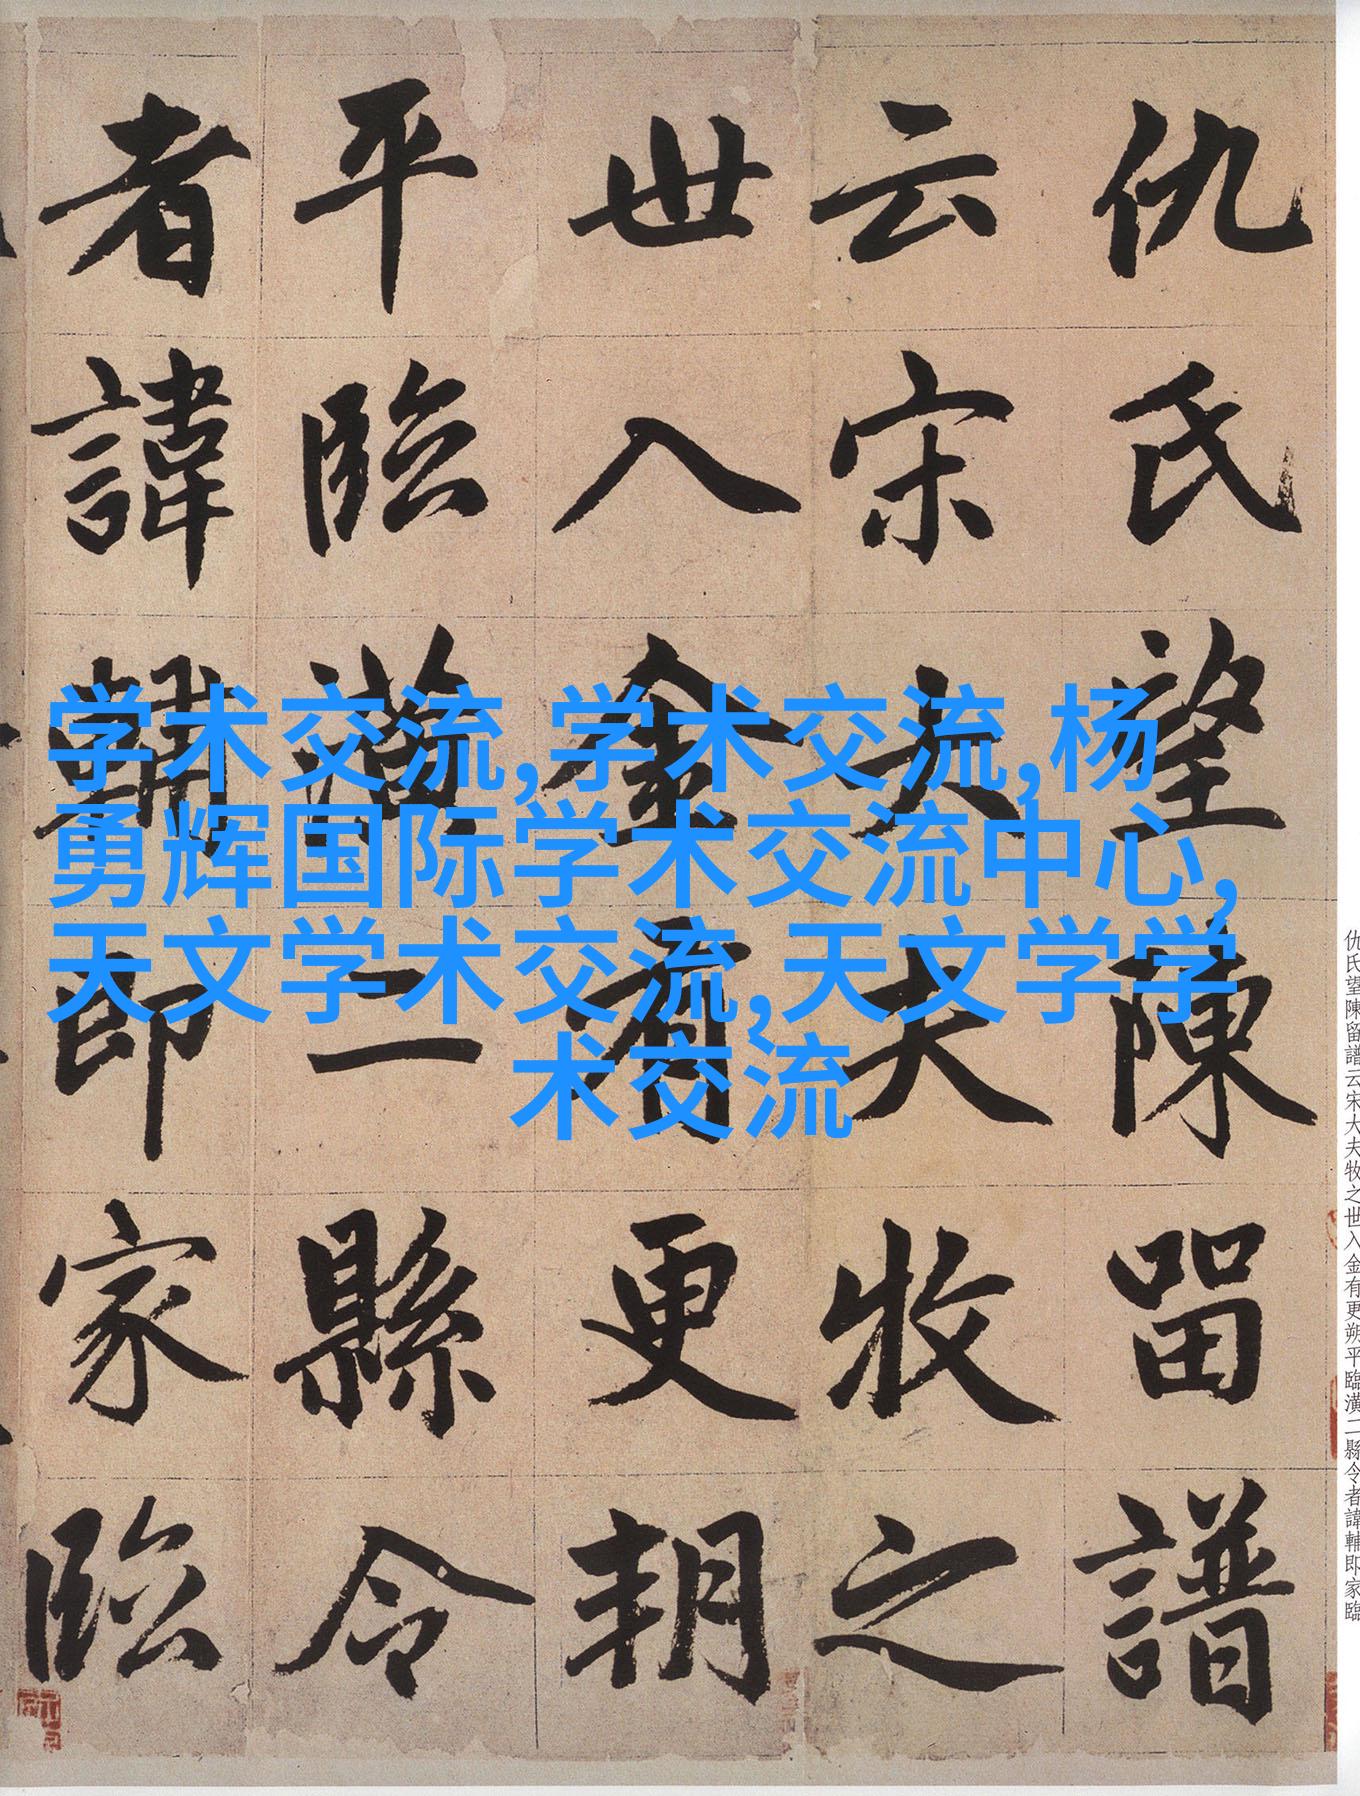 仇氏望陳留譜
云宋大夫牧之
世入金有更朔
平臨潢二縣令
者諱輔即家臨
学术交流,学术交流,杨
勇辉国际学术交流中心,
天文学术交流,天文学学
术交流
仇氏望陳留譜云宋大夫牧之世入金有更朔平臨潢二縣令者諱輔即家臨